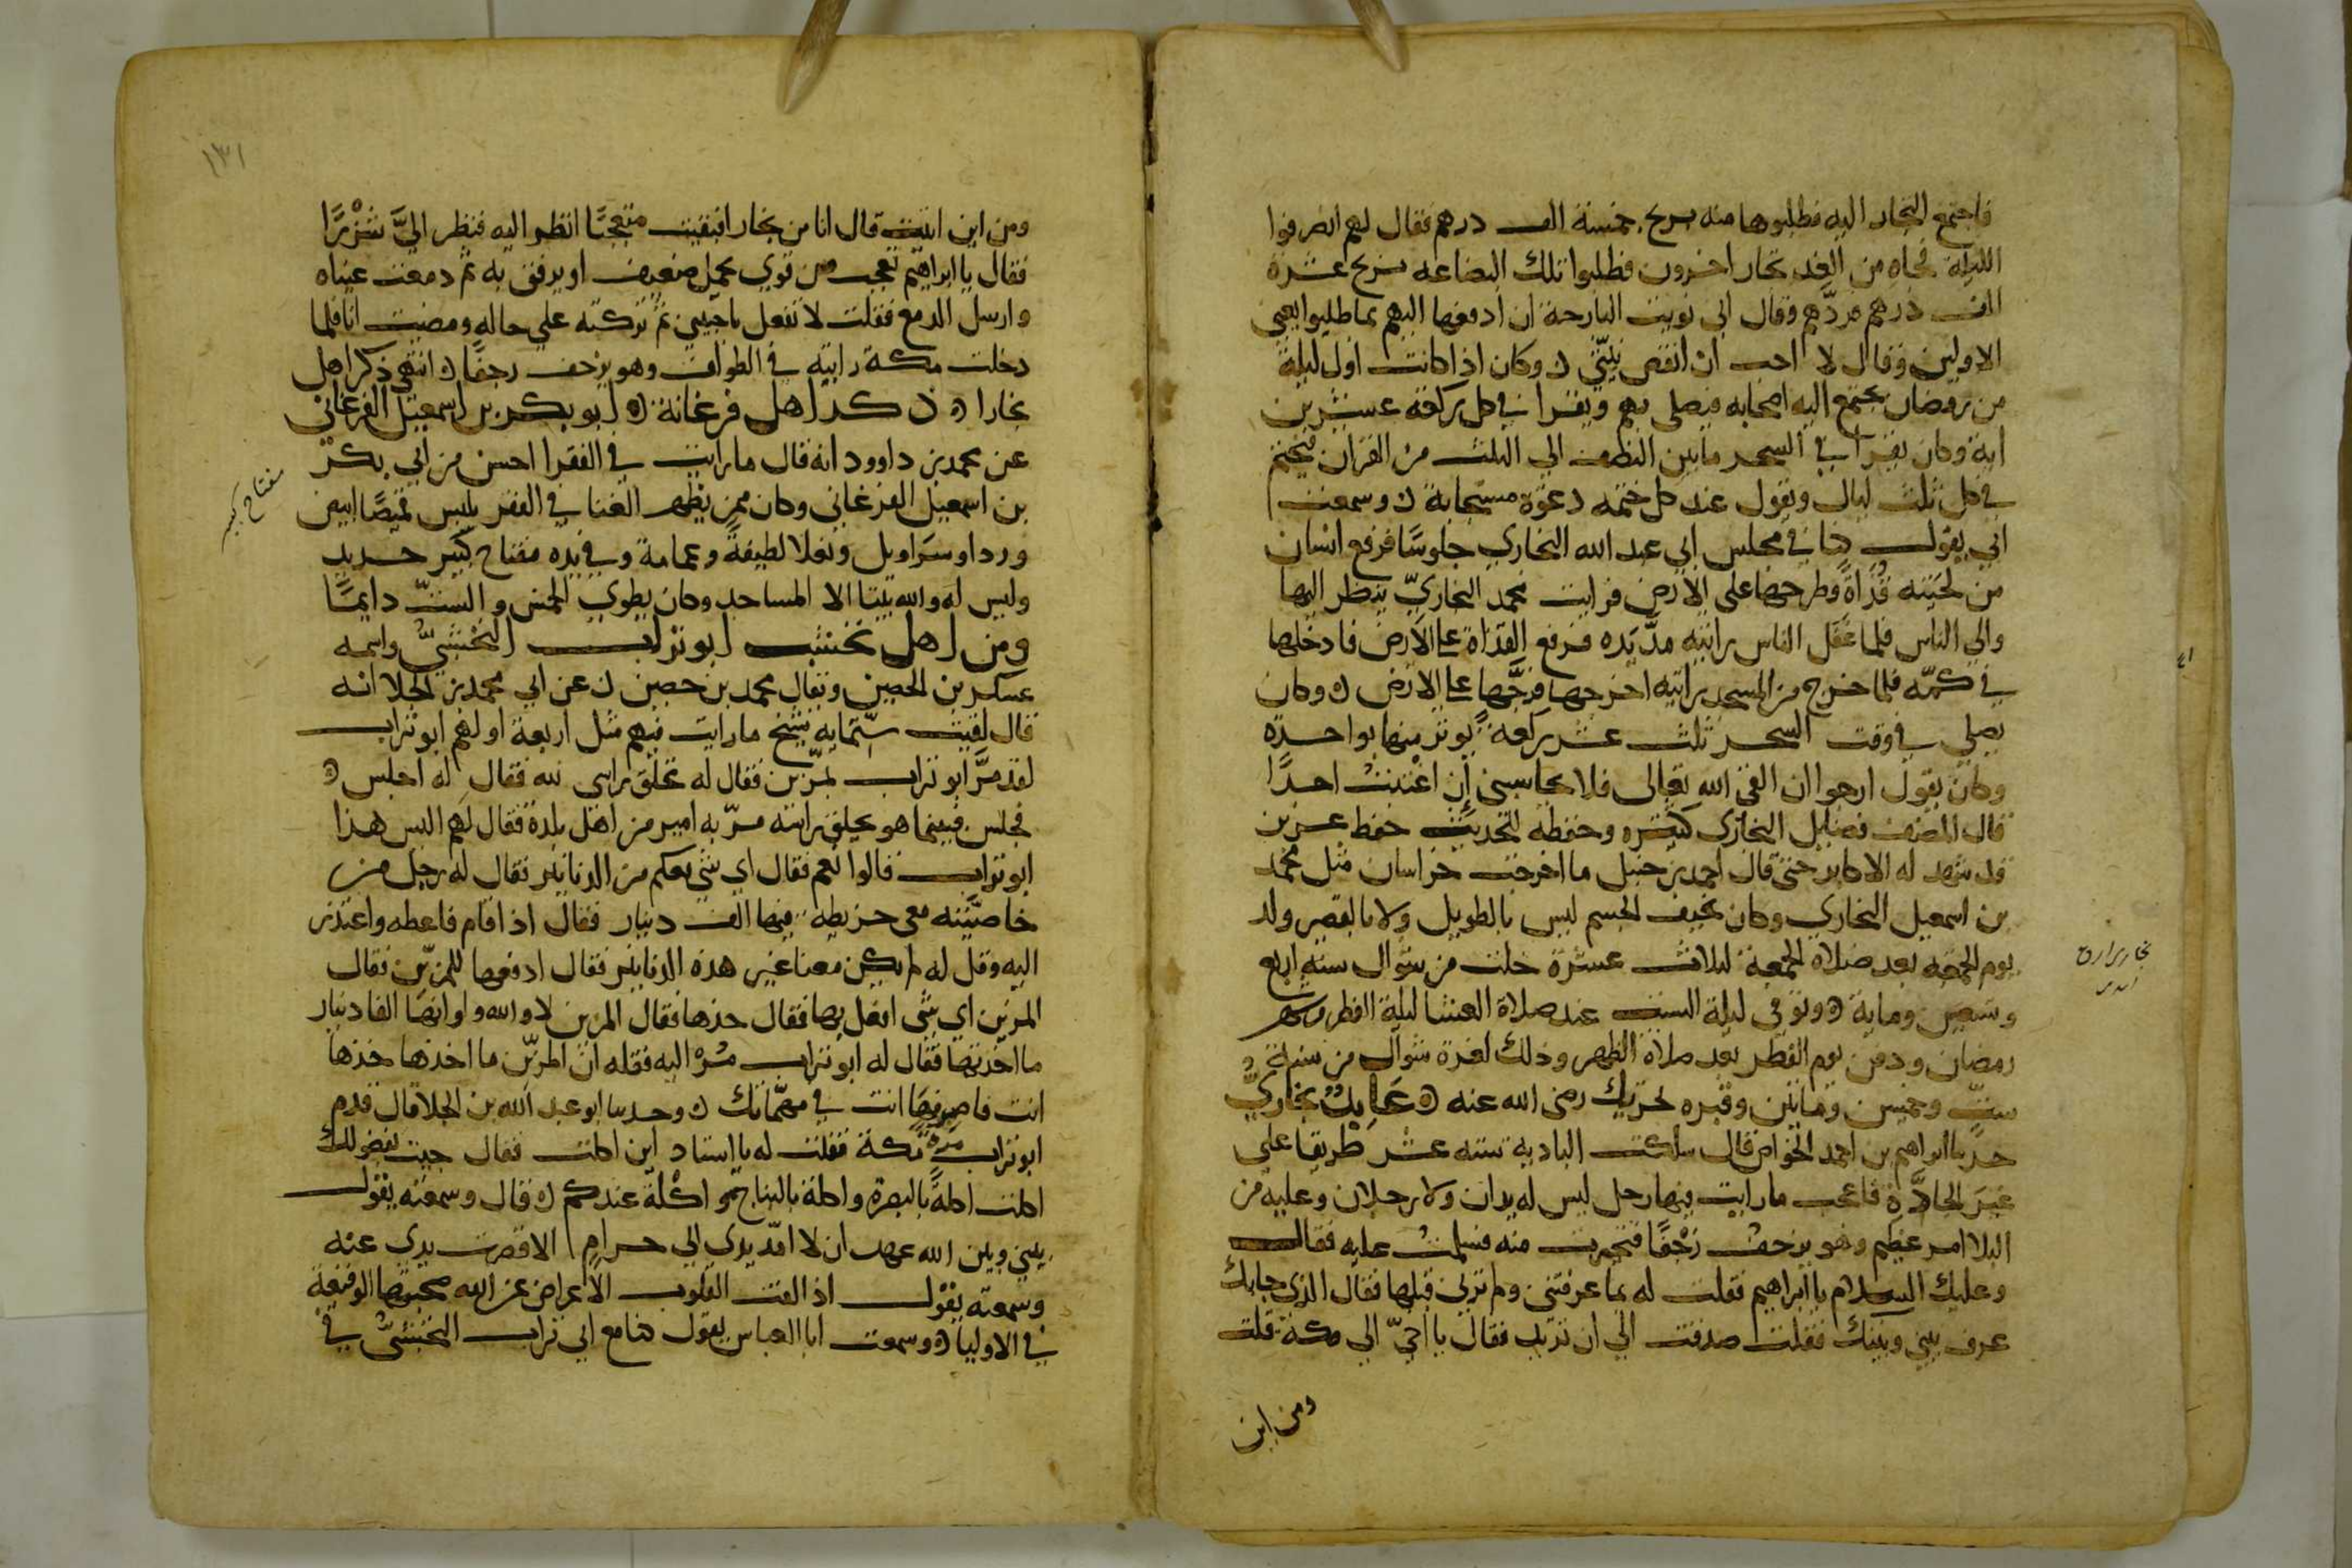 فاجتمع التجار اليه فطلبوها منه بربح خمسة الف درهم فقال لهم انصرفوا
الليلة فجاه من الغد تجار اخرون فطلبوا تلك البضاعه بربح عشرة
الف درهم فردّهم وقال اني نويت البارحة ان ادفعها اليهم بما طلبوا يعني
الاولين وقال لا احب ان انقص نيّتي ن وكان اذا كانت اول ليلة
من رمضان يجتمع اليه اصحابه فيصلي بهم ويقرا في كل ركعة عشرين
اية وكان يقرا في السحر ما بين النصف الي الثلث من القران فيختم
في كل ثلث ليال ويقول عند كل ختمه دعوة مستجابة ن وسمعت
ابي يقول كنا في مجلس ابي عبد الله البخاري جلوسًا فرفع انسان
من لحيته قذاةً وطرحها علي الارض فرايت محمد البخاريّ ينظر اليها
والي الناس فلما غفل الناس رايته مدّ يده فرفع القذاة عن الارض فادخلها
في كمّه فلما خرج من المسجد رايته اخرجها فرجّها علي الارض ن وكان
يصلي في وقت السحر ثلث عشر ركعة يوتر منها بواحدة
وكان يقول ارجوا ان القي الله تعالي فلا يحاسبني إن اغتبت احدًا
قال المصنف فضايل البخاري كثيره وحفظه للحديث حفظ عزيز
قد شهد له الاكابر حتي قال احمد بن حنبل ما اخرجت خراسان مثل محمد
بن اسمعيل البخاري وكان نحيف الجسم ليس بالطويل ولا بالقصير ولد
يوم الجمعه بعد صلاة الجمعة لثلاث عشرة خلت من شوال سنه اربع
وتسعين وماية ٥ وتوفي ليلة السبت عند صلاة العشا ليلة الفطر من شهر
رمضان ودفن يوم الفطر بعد صلاة الظهر وذلك لغرة شوال من سنة
ستٍّ وخمسين ومايتين وقبره بخرتنك رضي الله عنه ٥ عَابِدٌ بخاريٌّ
حدثنا ابراهيم بن احمد الخواص قال سلكت البادية ستة عشر طريقا علي
غيرَ الجادّة فاعجب ما رايت فيها رجل ليس له يدان ولا رجلان وعليه من
البلا امر عظيم وهو يزحف زحفًا فتحيرت منه فسلمت عليه فقال
وعليك السلام يا ابراهيم فقلت له بما عرفتني ولم ترني قبلها فقال الذي جابك
عرف بيني وبينك فقلت صدقت الي ان تريد فقال يا اخيّ الي مكة قلت
ومن اين
١٣١
ومن اين اتيت قال انا من بخارا فبقيت متعجبًا انظر اليه فنظر اليَّ شَزْرًا
فقال يا ابراهيم تعجب من قوي يحمل ضعيف او يرفق به ثم دمعت عيناه
وارسل الدمع فقلت لا تفعل يا حبيبي ثم تركته علي حاله ومضيت انا فلما
دخلت مكة رايته في الطواف وهو يزحف زحفًا ن انتهي ذكر اهل
بخارا ٥ ذكر اهل فرغانة ٥ ابو بكر بن اسمعيل الفرغاني
عن محمد بن داوود انه قال ما رايت في الفقرا احسن من ابي بكر
بن اسمعيل الفرغاني وكان ممن يظهر الغنا في الفقر يلبس قميصًا ابيض
وردا وسَراويل ونعلا لطيفةً وعمامة وفي يده مفتاح كبير حديد
وليس له والله بيتا الا المساجد وكان يطوي الخمس والستّ دايمًا
ومن اهل نخشب ابو تراب النخشبيُّ واسمه
عسكر بن الحصين ويقال محمد بن حصين ن عن ابي محمد بن الجلا انه
قال لقيت ستّمايه شيخ ما رايت فيهم مثل اربعة اولهم ابو تراب
لقد مرَّ ابو تراب بمزّين فقال له تحلق راسي لله فقال له اجلس ٥
فجلس فبينما هو يحلق راسه مرّ به امير من اهل بلدة فقال لهم اليس هذا
ابو تراب قالوا نعم فقال اي شي معكم من الدنانير فقال له رجل من
خاصّيته معي خريطه فيها الف دينار فقال اذا قام فاعطه واعتذر
اليه وقل له لم يكن معنا غير هذه الدنانير فقال ادفعها للمزيّن فقال
المزين اي شي افعل بها فقال خذها فقال المزين لا والله ولو انها الفا دينار
ما اخذتها فقال له ابو تراب مُرْ اليه فقله ان المزيّن ما اخذها خذها
انت فاصرفها انت في مهمّاتك ن وحدثنا ابو عبد الله بن الجلا قال قدم
ابو تراب مرة مكة فقلت له يا استاذ اين اكلت فقال جيت بفضولك
اكلت اكلةً بالبصرة واكلة بالنباج واكلة عندكم ن قال وسمعته يقول
بيني وبين الله عهد ان لا امدّ يدي الي حرامٍ الا قصرت يدي عنه
وسمعته يقول اذا الفت القلوب الاعراض عن الله صحبتها الوقيعة
في الاوليا ٥ وسمعت ابا العباس يقول كنا مع ابي تراب النخشبيّ في
مفتاح كبير